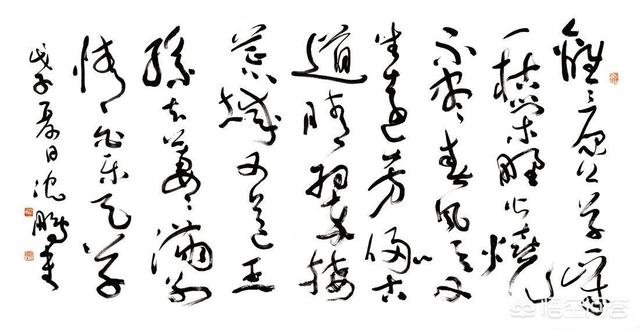 離〻原上草一歲
一枯榮野火燒
不盡春風吹又
生遠芳侵古
道晴翠接
荒城又送王
孫去萋〻滿別
情 白樂天草
戊子夏日沈鵬書
悟空问答